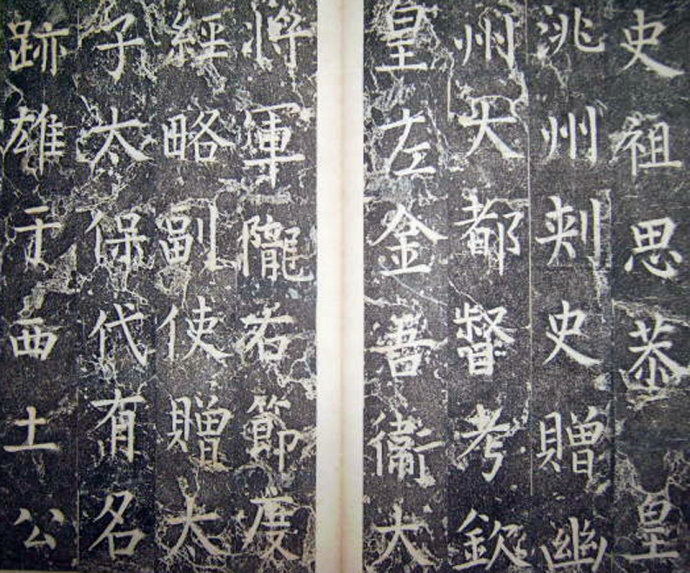 史祖思恭皇
洮州刾史贈幽
州大都督考欽
皇左金吾衞大
將軍隴右節度
經略副使贈太
子太保代有名
跡雄于西土公